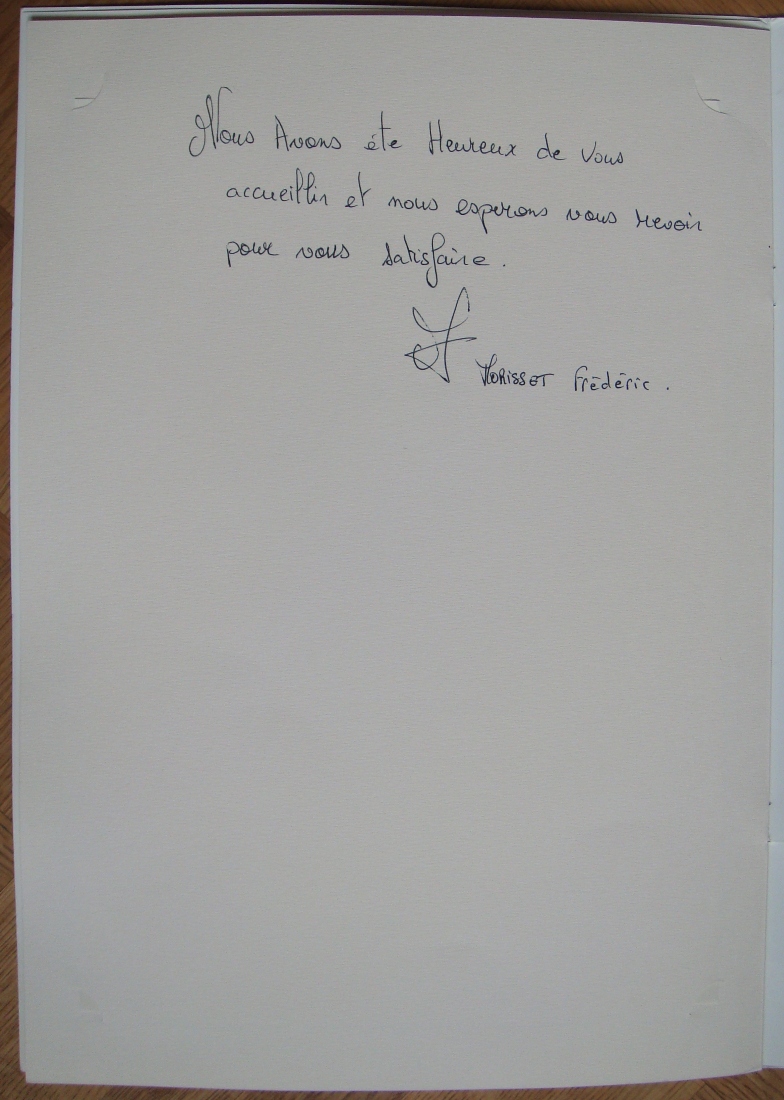 Nous Avons éte Heureux de Vous
accueillir et nous esperons vous revoir
pour vous satisfaire.
MORISSET Frédéric.